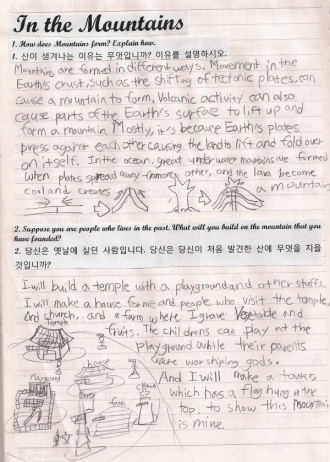 In the Mountains
1. How does Mountains form? Explain how.
1. 산이 생겨나는 이유는 무엇입니까? 이유를 설명하시오.
Mountains are formed in different ways. Movement in the
Earth's crust, such as the shifting of tectonic plates, can
cause a mountain to form. Volcanic activity can also
cause parts of the Earth's surface to lift up and
form a mountain. Mostly, it's because Earth's plates
press against each other causing the land to lift and fold over
on itself. In the ocean, great under water mountains are formed
when plates spread away from each other, and the lava become
cool and creates
a mountain
2. Suppose you are people who lives in the past. What will you build on the mountain that you
have founded?
2. 당신은 옛날에 살던 사람입니다. 당신은 당신이 처음 발견한 산에 무엇을 지을
것입니까?
I will build a temple with a playground and other stuffs.
I will make a house for me and people who visit the temple,
and church, and a farm where I grave Vegetable and
fruits. The childrens can play at the
playground while their parents
were worshiping gods.
And I will make a tower,
which has a flag hung at the
top, to show this mountain
is mine.
temple
house
Playground
church
tower
farm